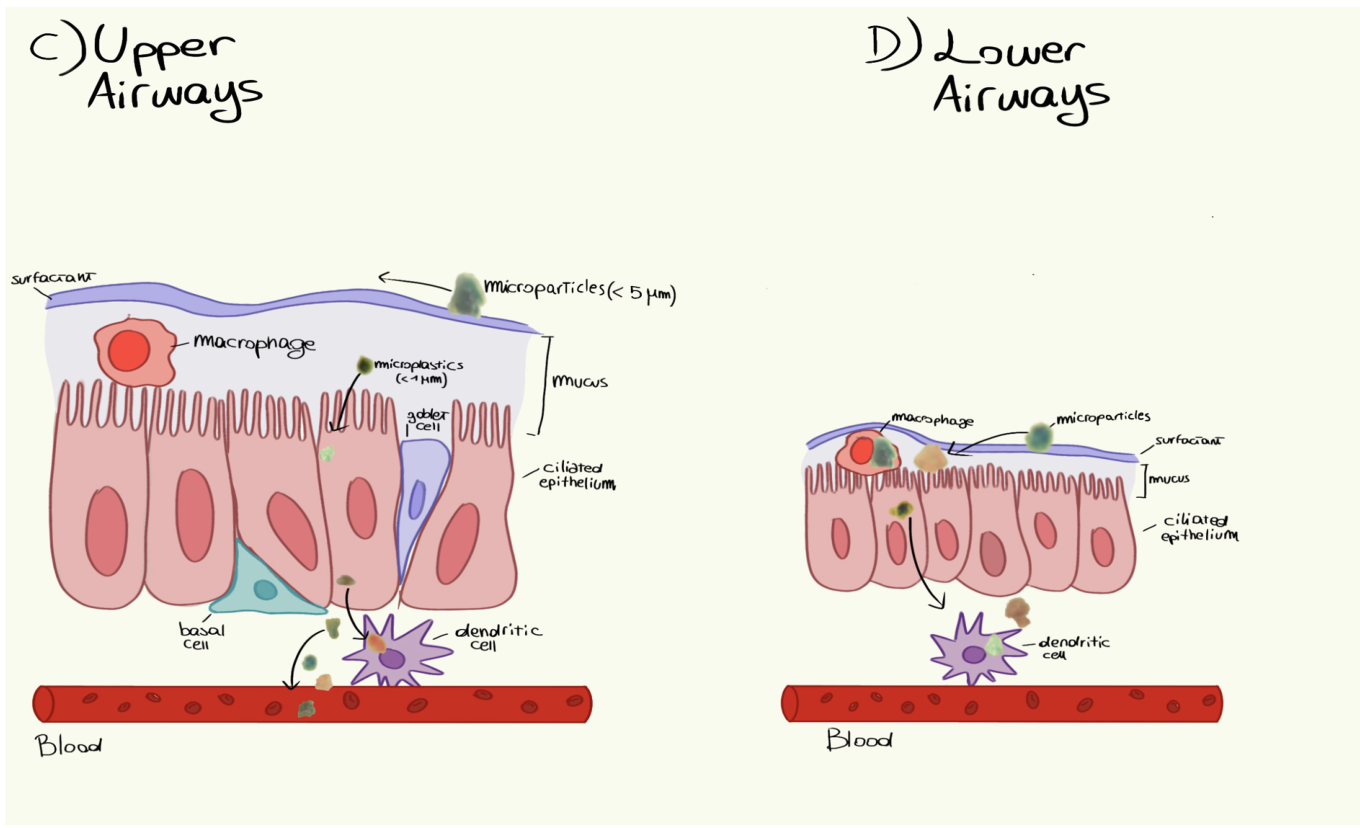 C) Upper
Airways
surfactant
microparticles (< 5 μm)
macrophage
microplastics
(< 1 μm)
mucus
goblet
cell
ciliated
epithelium
basal
cell
dendritic
cell
Blood
D) Lower
Airways
macrophage
microparticles
surfactant
mucus
ciliated
epithelium
dendritic
cell
Blood